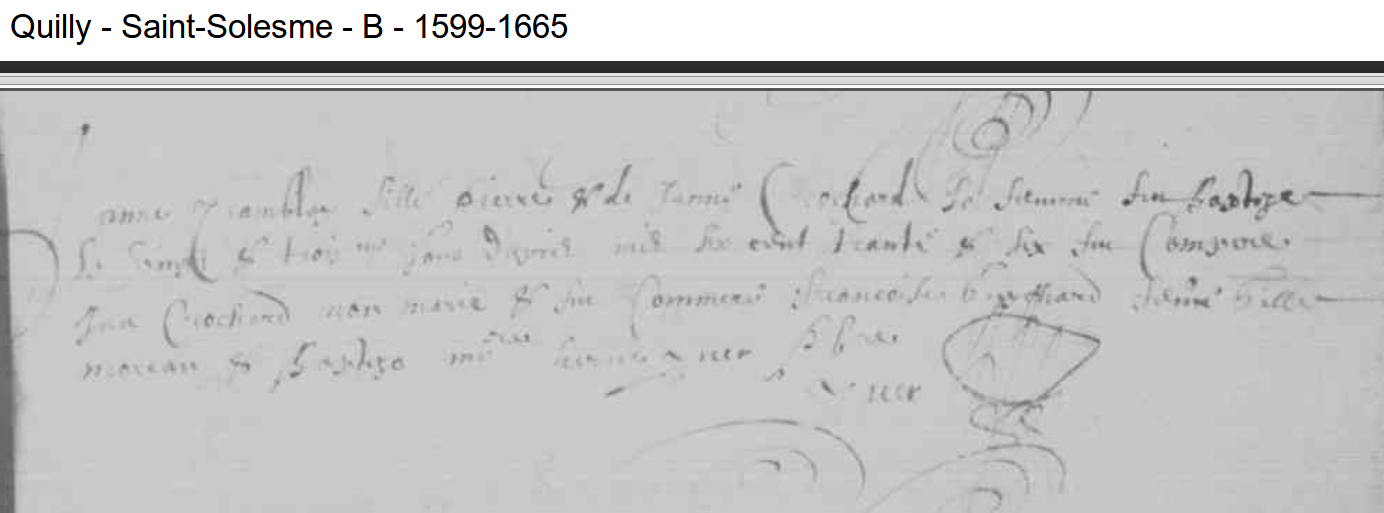 Quilly - Saint-Solesme - B - 1599-1665
anne Tramblay fille pierre & de Janne Crochard sa femme fut baptize
le vingt & trois me jour d'apvril mil six cent trante & six fut Compere
Jan Crochard non marie & fut Commere francoise bouchard femme Gille
moreau & baptizo